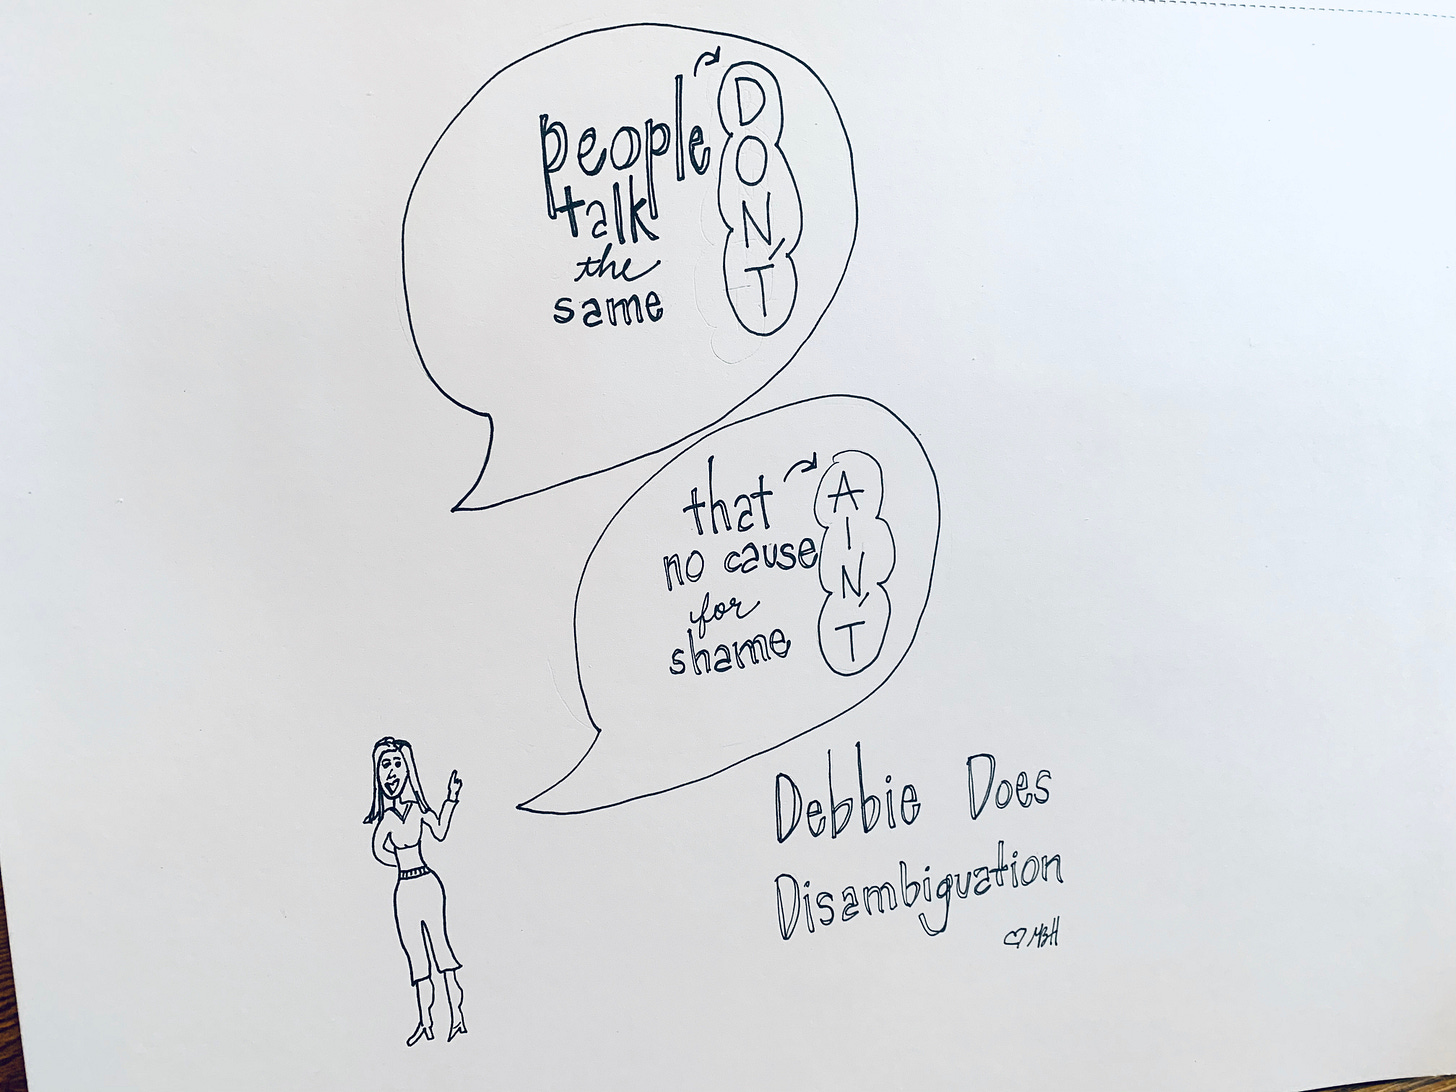 people DON'T
talk
the
same
that AIN'T
no cause
for
shame
Debbie Does
Disambiguation
♡ MBH